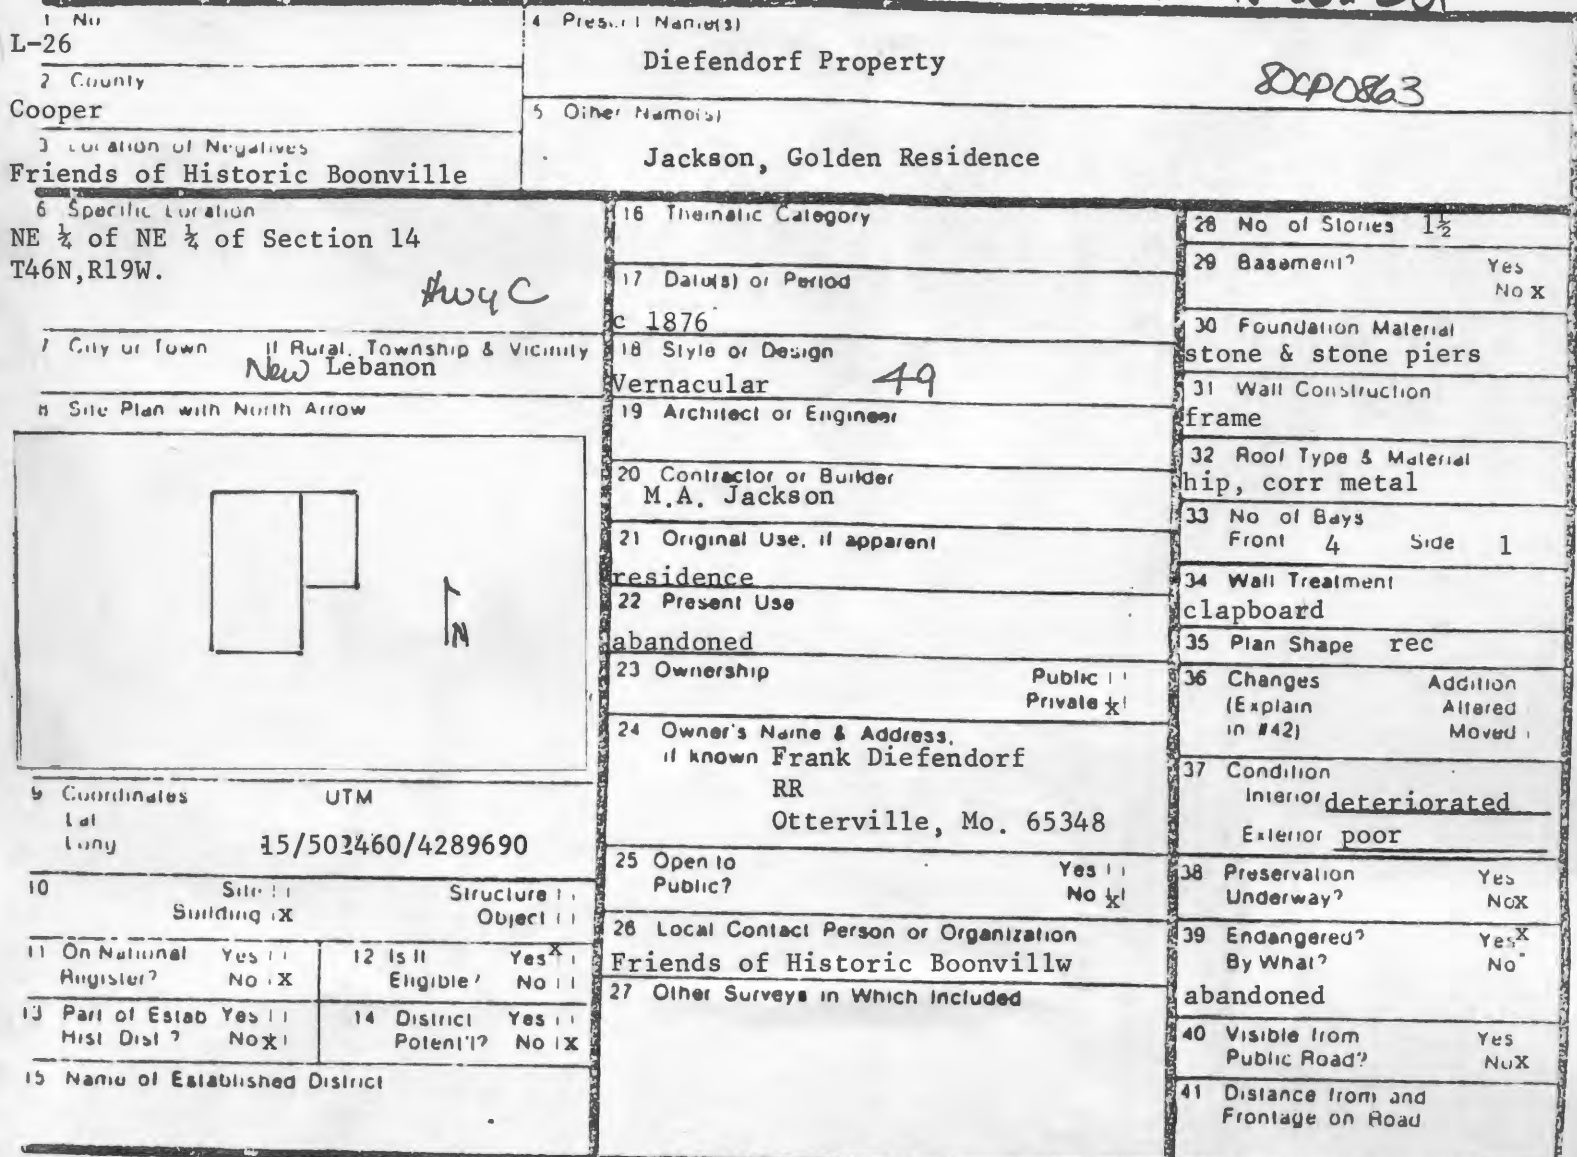 1 No
L-26
2 County
Cooper
3 Location of Negatives
Friends of Historic Boonville
4 Present Name(s)
Diefendorf Property
80CP0863
5 Other Name(s)
Jackson, Golden Residence
6 Specific Location
NE ¼ of NE ¼ of Section 14
T46N,R19W.
Hwy C
7 City or Town If Rural, Township & Vicinity
New Lebanon
8 Site Plan with North Arrow
N
9 Coordinates UTM
Lat
Long
15/502460/4289690
10 Site Structure
Building X Object
11 On National Yes
Register? No X
12 Is It Yes X
Eligible? No
13 Part of Estab Yes
Hist Dist? No X
14 District Yes
Potent'l? No X
15 Name of Established District
16 Thematic Category
17 Date(s) or Period
c 1876
18 Style or Design
Vernacular 49
19 Architect or Engineer
20 Contractor or Builder
M.A. Jackson
21 Original Use, if apparent
residence
22 Present Use
abandoned
23 Ownership Public
Private x
24 Owner's Name & Address,
if known Frank Diefendorf
RR
Otterville, Mo. 65348
25 Open to Yes
Public? No x
26 Local Contact Person or Organization
Friends of Historic Boonvillw
27 Other Surveys in Which Included
28 No of Stories 1½
29 Basement? Yes
No X
30 Foundation Material
stone & stone piers
31 Wall Construction
frame
32 Roof Type & Material
hip, corr metal
33 No of Bays
Front 4 Side 1
34 Wall Treatment
clapboard
35 Plan Shape rec
36 Changes Addition
(Explain Altered
in #42) Moved
37 Condition
Interior deteriorated
Exterior poor
38 Preservation Yes
Underway? No X
39 Endangered? Yes X
By What? No
abandoned
40 Visible from Yes
Public Road? No X
41 Distance from and
Frontage on Road